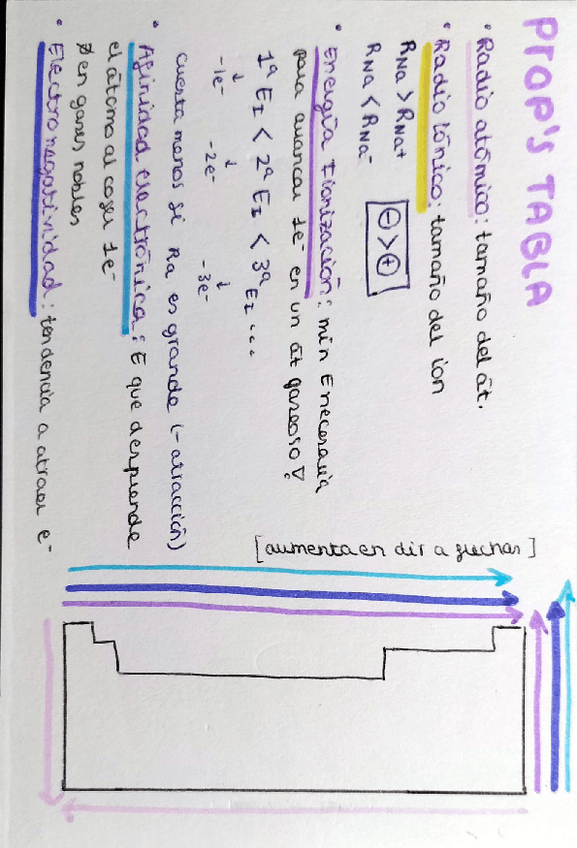 PROP'S TABLA
• Radio atómico: tamaño del át.
• Radio iónico: tamaño del ion
RNa > RNa+
RNa < RNa-
⊖ > ⊕
• Energía Ionización: mín E necesaria
para arrancar 1e- en un át gaseoso
1ª EI < 2ª EI < 3ª EI ...
↓ ↓ ↓
-1e- -2e- -3e-
cuesta menos si Ra es grande (- atracción)
• Afinidad electrónica: E que desprende
el átomo al coger 1e-
∄ en gases nobles
• Electronegatividad: tendencia a atraer e-
[aumenta en dir a flechas]